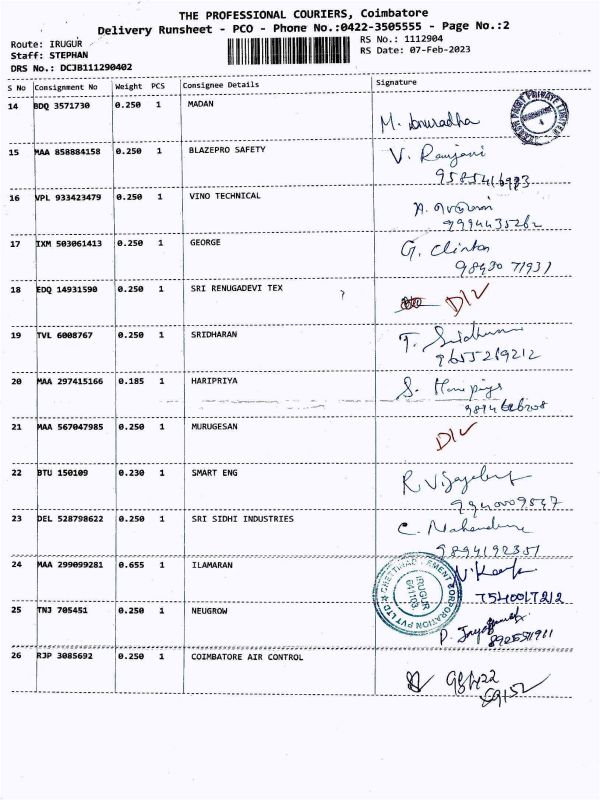 THE PROFESSIONAL COURIERS, Coimbatore
Delivery Runsheet - PCO - Phone No.:0422-3505555 - Page No.:2
Route: IRUGUR
RS No.: 1112904
Staff: STEPHAN
RS Date: 07-Feb-2023
DRS No.: DCJB111290402
S No Consignment No Weight PCS Consignee Details Signature
14 BDQ 3571730 0.250 1 MADAN
M. Anuradha
15 MAA 858884158 0.250 1 BLAZEPRO SAFETY
V. Ranjani
16 VPL 933423479 0.250 1 VINO TECHNICAL
9994435262
17 IXM 503061413 0.250 1 GEORGE
G. Clinton
98430 71931
18 EDQ 14931590 0.250 1 SRI RENUGADEVI TEX ?
DIV
19 TVL 6008767 0.250 1 SRIDHARAN
T.
9655269212
20 MAA 297415166 0.185 1 HARIPRIYA
S. Haripriya
21 MAA 567047985 0.250 1 MURUGESAN
DIV
22 BTU 150109 0.230 1 SMART ENG
23 DEL 528798622 0.250 1 SRI SIDHI INDUSTRIES
C.
9894192351
24 MAA 299099281 0.655 1 ILAMARAN
IRUGUR
641103
7540017212
25 TNJ 705451 0.250 1 NEUGROW
26 RJP 3085692 0.250 1 COIMBATORE AIR CONTROL